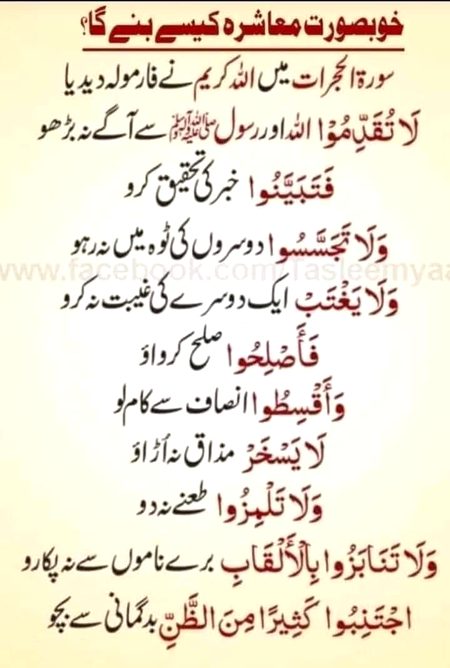 خوبصورت معاشرہ کیسے بنے گا؟
سورۃ الحجرات میں اللہ کریم نے فارمولہ دیدیا
لَا تُقَدِّمُوْا اللہ اور رسول ﷺ سے آگے نہ بڑھو
فَتَبَيَّنُوا خبر کی تحقیق کرو
وَلَا تَجَسَّسُوا دوسروں کی ٹوہ میں نہ رہو
www.facebook.com/Tasleemyaa
وَلَا يَغْتَبْ ایک دوسرے کی غیبت نہ کرو
فَأَصْلِحُوا صلح کرواؤ
وَأَقْسِطُوا انصاف سے کام لو
لَا يَسْخَرْ مذاق نہ اُڑاؤ
وَلَا تَلْمِزُوا طعنے نہ دو
وَلَا تَنَابَزُوا بِالْأَلْقَابِ برے ناموں سے نہ پکارو
اجْتَنِبُوا كَثِيرًا مِنَ الظَّنِّ بدگمانی سے بچو